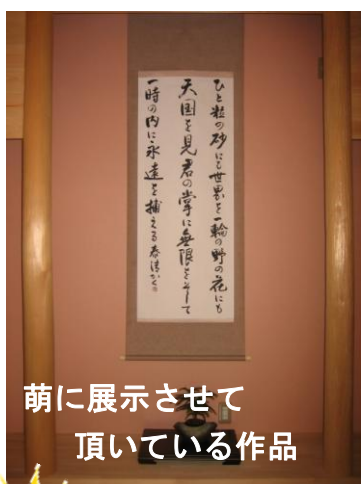 ひと粒の砂にも世界を一輪の野の花にも
天国を見君の掌に無限をそして
一時の内に永遠を捕える春清かく
萌に展示させて
頂いている作品